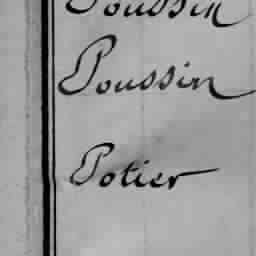 Poussin
Poussin
Potier